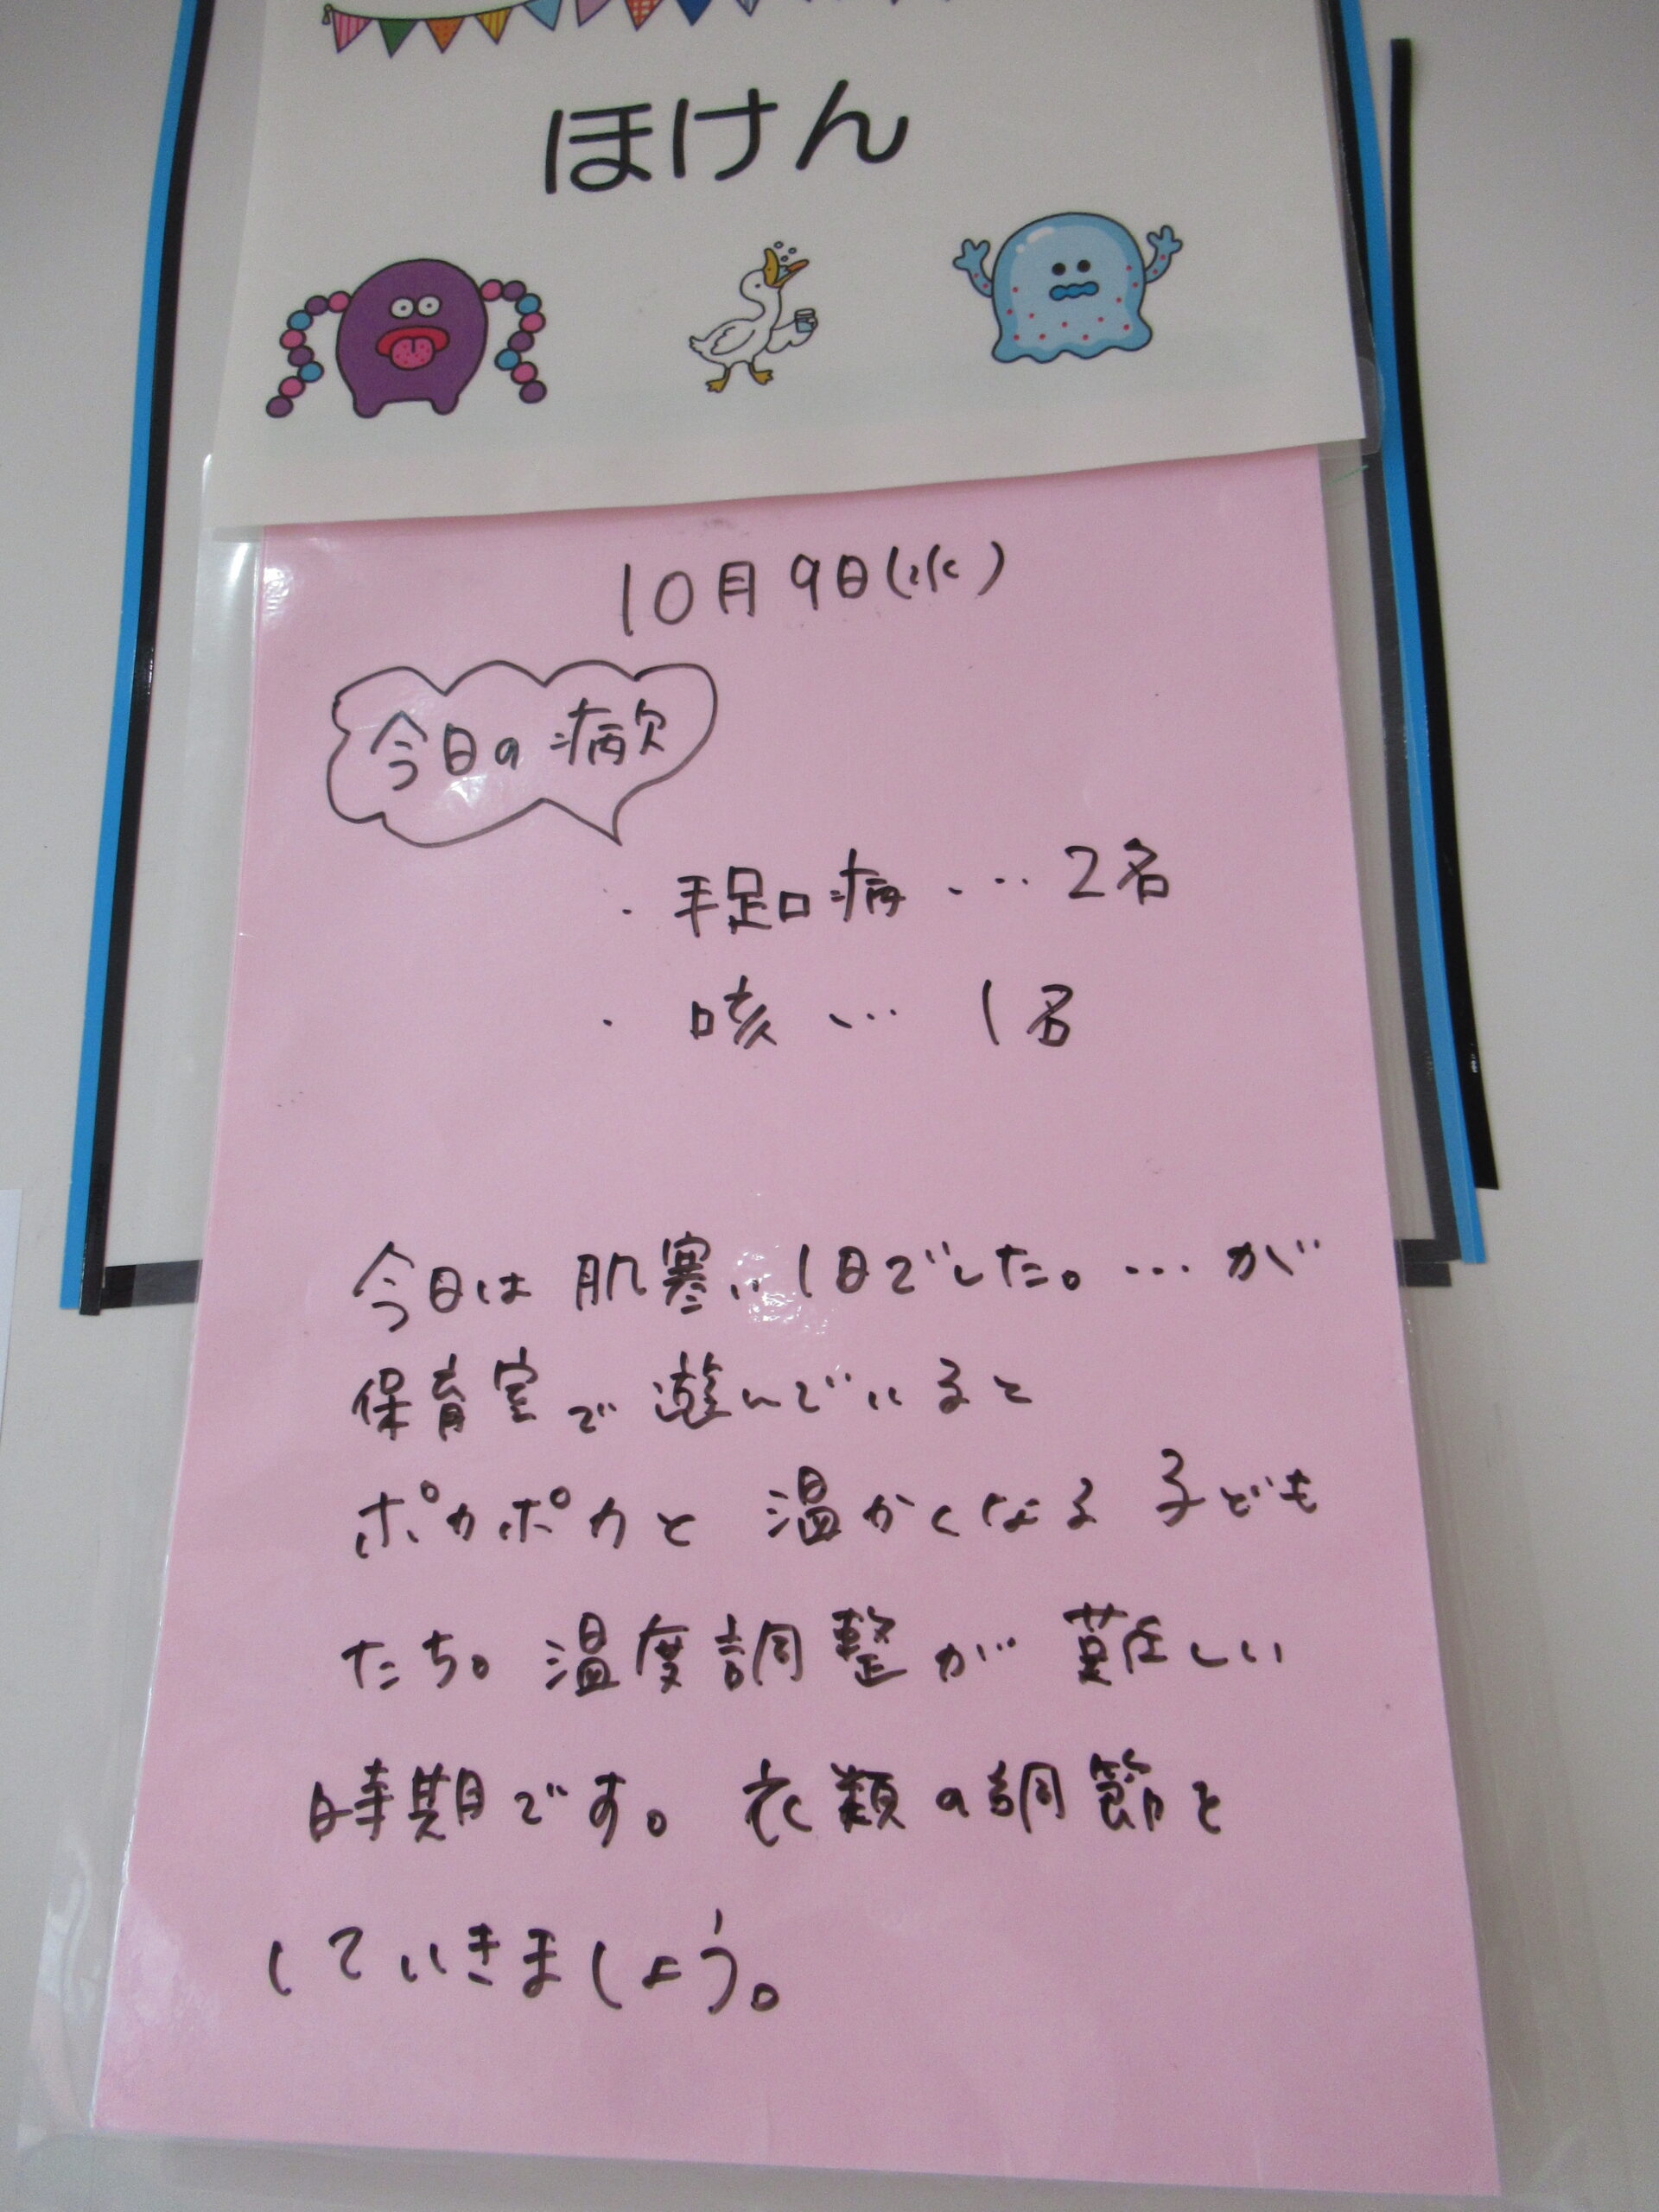 ほけん
10月9日(水)
今日の病欠
・手足口病・・・2名
・咳・・・1名
今日は肌寒い1日でした。・・・が
保育室で遊んでいると
ポカポカと温かくなる子ども
たち。温度調整が難しい
時期です。衣類の調節を
していきましょう。